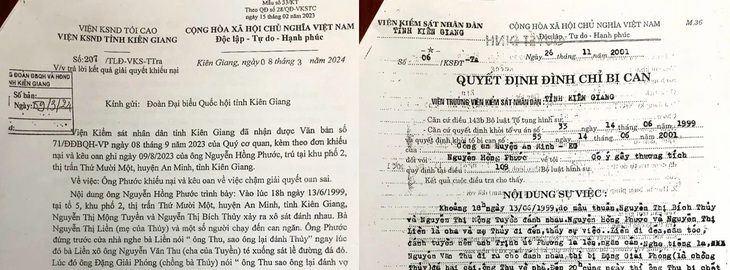 Mẫu số 33/KT
Theo QĐ số 28/QĐ-VKSTC
ngày 15 tháng 02 năm 2023
VIỆN KSND TỐI CAO
VIỆN KSND TỈNH KIÊN GIANG
CỘNG HÒA XÃ HỘI CHỦ NGHĨA VIỆT NAM
Độc lập - Tự do - Hạnh phúc
Số: 207 /TLĐ-VKS-TTra
V/v trả lời kết quả giải quyết khiếu nại
Kiên Giang, ngày 08 tháng 3 năm 2024
ĐOÀN ĐBQH VÀ HĐND
TỈNH KIÊN GIANG
Số bản:
Ngày:
Kính gửi: Đoàn Đại biểu Quốc hội tỉnh Kiên Giang
Viện Kiểm sát nhân dân tỉnh Kiên Giang đã nhận được Văn bản số
71/ĐĐBQH-VP ngày 08 tháng 9 năm 2023 của Quý cơ quan, kèm theo đơn khiếu
nại và kêu oan ghi ngày 09/8/2023 của ông Nguyễn Hồng Phước, trú tại khu phố 2,
thị trấn Thứ Mười Một, huyện An Minh, tỉnh Kiên Giang.
Về việc: Ông Phước khiếu nại và kêu oan về việc chậm giải quyết oan sai.
Nội dung ông Nguyễn Hồng Phước trình bày: Vào lúc 18h ngày 13/6/1999,
tại tổ 5, khu phố 2, thị trấn Thứ Mười Một, huyện An Minh, tỉnh Kiên Giang,
Nguyễn Thị Mộng Tuyền và Nguyễn Thị Bích Thủy xảy ra xô sát đánh nhau. Bà
Nguyễn Thị Liền (mẹ của Thủy) và một số người chạy đến can ngăn. Ông Phước
đứng trước cửa nhà nghe bà Liền nói “ ông Thu, sao ông lại đánh Thủy” ngay lúc
đó bà Liền xô ông Nguyễn Văn Thu (cha của Tuyền) té xuống sát lề đường đá đỏ.
Lúc đó ông Đặng Giải Phóng (chồng bà Thủy) nói “ ông Thu sao ông lại đánh vợ
VIỆN KIỂM SÁT NHÂN DÂN
TỈNH KIÊN GIANG
CỘNG HÒA XÃ HỘI CHỦ NGHĨA VIỆT NAM
M.36
Độc lập - Tự do - Hạnh phúc
Số 06 /KSĐT-TA
26 11 2001
QUYẾT ĐỊNH ĐÌNH CHỈ BỊ CAN
VIỆN TRƯỞNG VIỆN KIỂM SÁT NHÂN DÂN TỈNH KIÊN GIANG
Căn cứ điều 143b Bộ luật Tố tụng hình sự.
Căn cứ quyết định khởi tố vụ án số 33 ngày 14 tháng 06 năm 1999
quyết định khởi tố bị can số 55 ngày 14 tháng 06 năm 2001
Công an huyện An Minh - KG
đối với Nguyễn Hồng Phước về tội Cố ý gây thương tích
quy định tại điều 109 Bộ luật hình sự.
Kết quả của cuộc điều tra cho thấy.
NỘI DUNG SỰ VIỆC:
Khoảng 18h ngày 13/06/1999, do mâu thuẫn, Nguyễn Thị Bích Thủy
và Nguyễn Thị Mộng Tuyền đánh nhau.